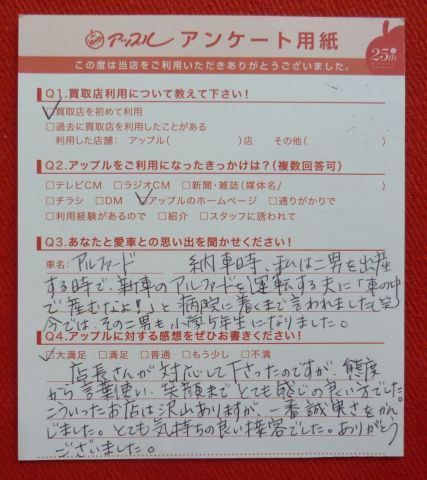 アップル アンケート用紙
25th
この度は当店をご利用いただきありがとうございました。
Q1.買取店利用について教えて下さい!
□買取店を初めて利用
□過去に買取店を利用したことがある
利用した店舗: アップル( )店 その他( )
Q2.アップルをご利用になったきっかけは?(複数回答可)
□テレビCM □ラジオCM □新聞・雑誌(媒体名/ )
□チラシ □DM □アップルのホームページ □通りがかりで
□利用経験があるので □紹介 □スタッフに誘われて
Q3.あなたと愛車との思い出を聞かせください!
車名: アルファード 納車時、私は二男を出産
する時で、新車のアルファードを運転する夫に「車の中
で産むなよ!」と病院に着くまで言われました(笑)
今では、その二男も小学5年生になりました。
Q4.アップルに対する感想をぜひお書きください!
□大満足 □満足 □普通 □もう少し □不満
店長さんが対応して下さったのですが、態度
から言葉使い、笑顔までとても感じの良い方でした。
こういったお店は沢山ありますが、一番誠実さをかん
じました。とても気持ちの良い接客でした。ありがとう
ございました。